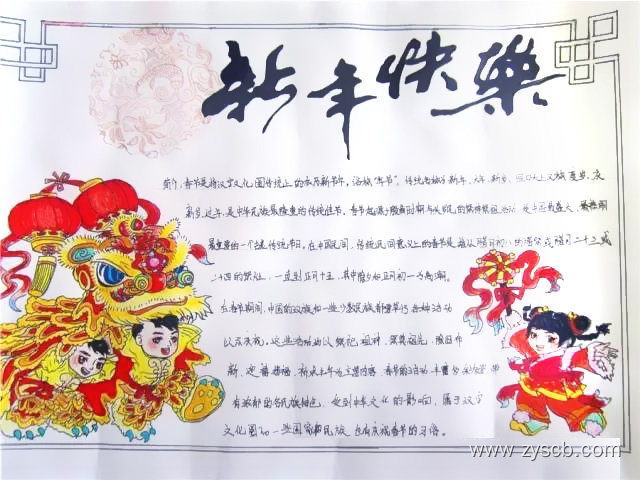 新年快樂
春节是指汉字文化圈传统上的农历新年,俗称"年节",传统名称为新年、大年、新岁,但口头上又称度岁、庆
新岁、过年,是中华民族最隆重的传统佳节。
最重要的一个古老传统节日。在中国民间,传统民间意义上的春节是指从腊月初八的腊祭或腊月二十三或
二十四的祭灶,一直到正月十五,其中以除夕和正月初一为高潮。
在春节期间,中国的汉族和一些少数民族都要举行各种活动
以示庆祝。这些活动均以祭祀祖神、祭奠祖先、除旧布
新、迎禧接福、祈求丰年为主要内容。春节的活动丰富多彩,带
有浓郁的各民族特色。受到中华文化的影响,属于汉字
文化圈的一些国家和民族也有庆祝春节的习俗。
www.zyscb.com